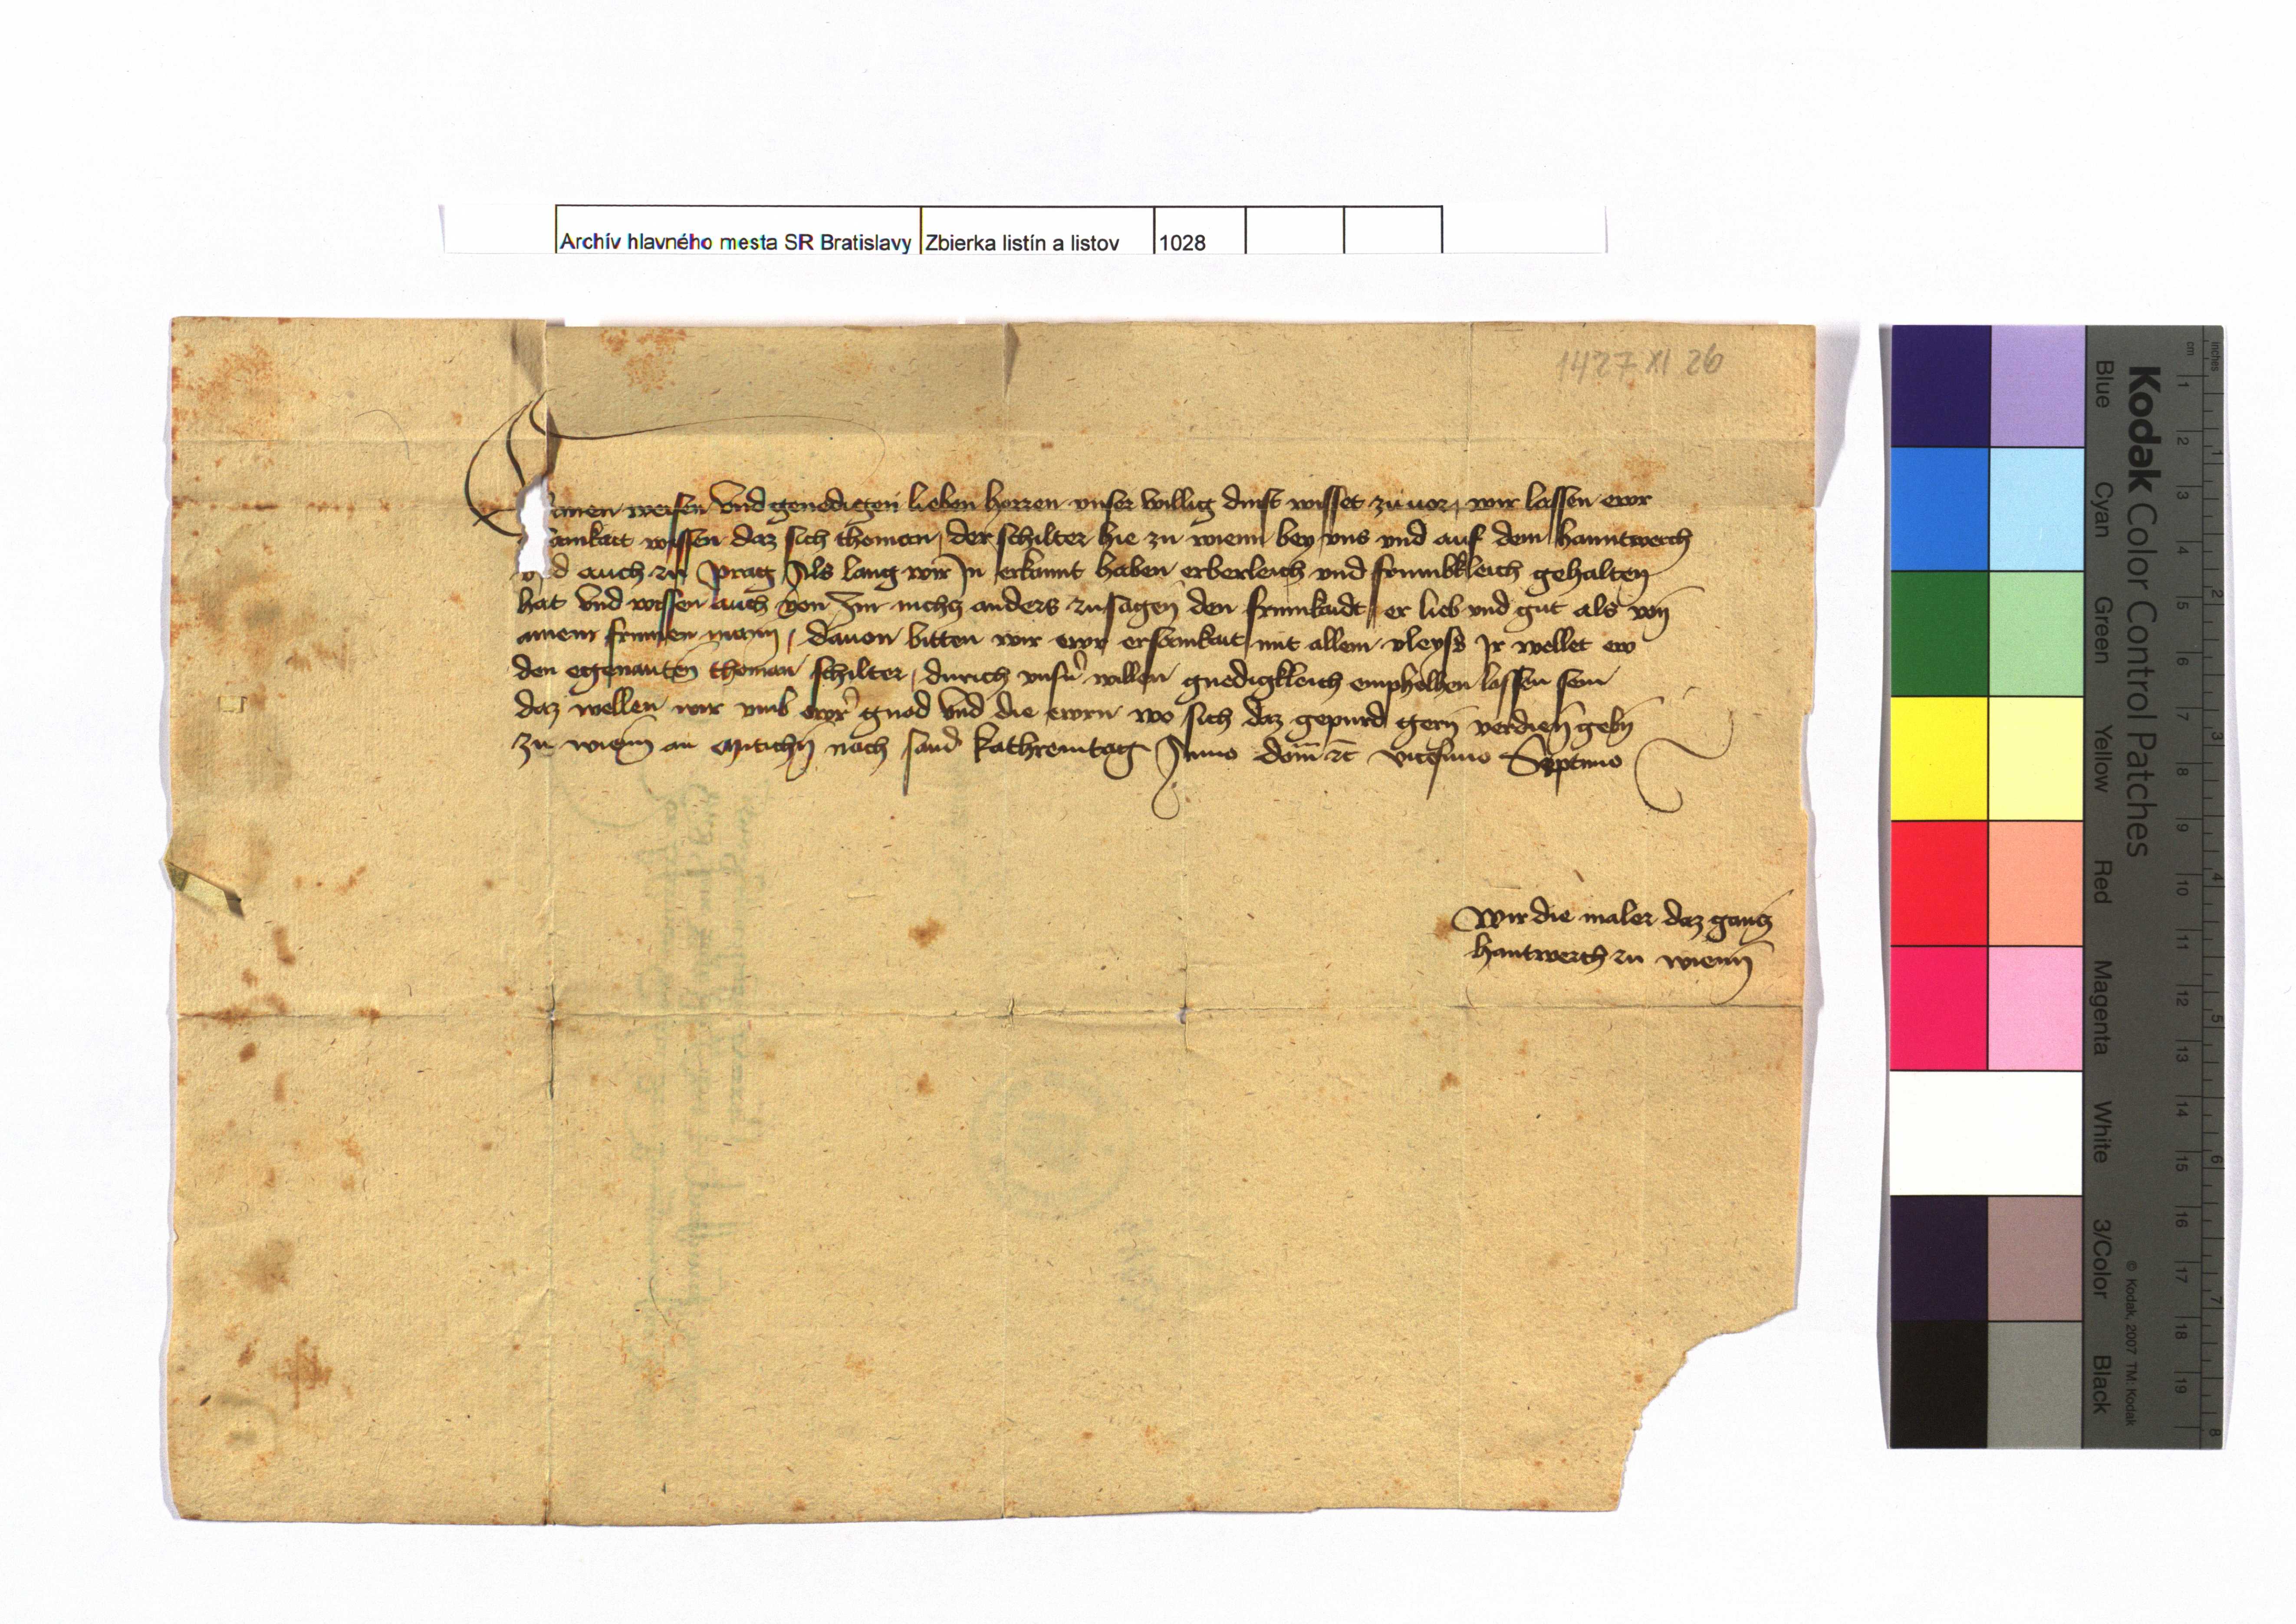 Archív hlavného mesta SR Bratislavy Zbierka listín a listov 1028
1427 XI 26
weisen vnd genedigen lieben herren vnser willig dinst wisset zuuor, wir lassen ewr
wissen daz sich thoman, der schilter hie zu wienn bey vns vnd auf dem hanntwerch
auch zu Prag Als lang wir In erkannt haben erberleich vnd frumbkleich gehalten
hat vnd wissen auch von Im nichcz anders zusagen den frumkaidt er lieb vnd gut als von
ainem frumen mann, dauon bitten wir ewr ersamkait mit allem vleyss Ir wellet ew
den egenanten thoman schilter, durich vnsern willen gnedigkleich emphelhen lassen sein
daz wellen wir vmb ewr gnad vnd die ewrn wo sich daz gepurd gern verdien gebn
zu wienn an Mitichn nach sand kathreintag Anno dom etc vicesimo Septimo
Wir die maler daz gancz
hantwerch zu wienn
Kodak Color Control Patches
Blue Cyan Green Yellow Red Magenta White 3/Color Black
© Kodak, 2007 TM: Kodak
cm 1 2 3 4 5 6 7 8 9 10 11 12 13 14 15 16 17 18 19
inches 1 2 3 4 5 6 7 8